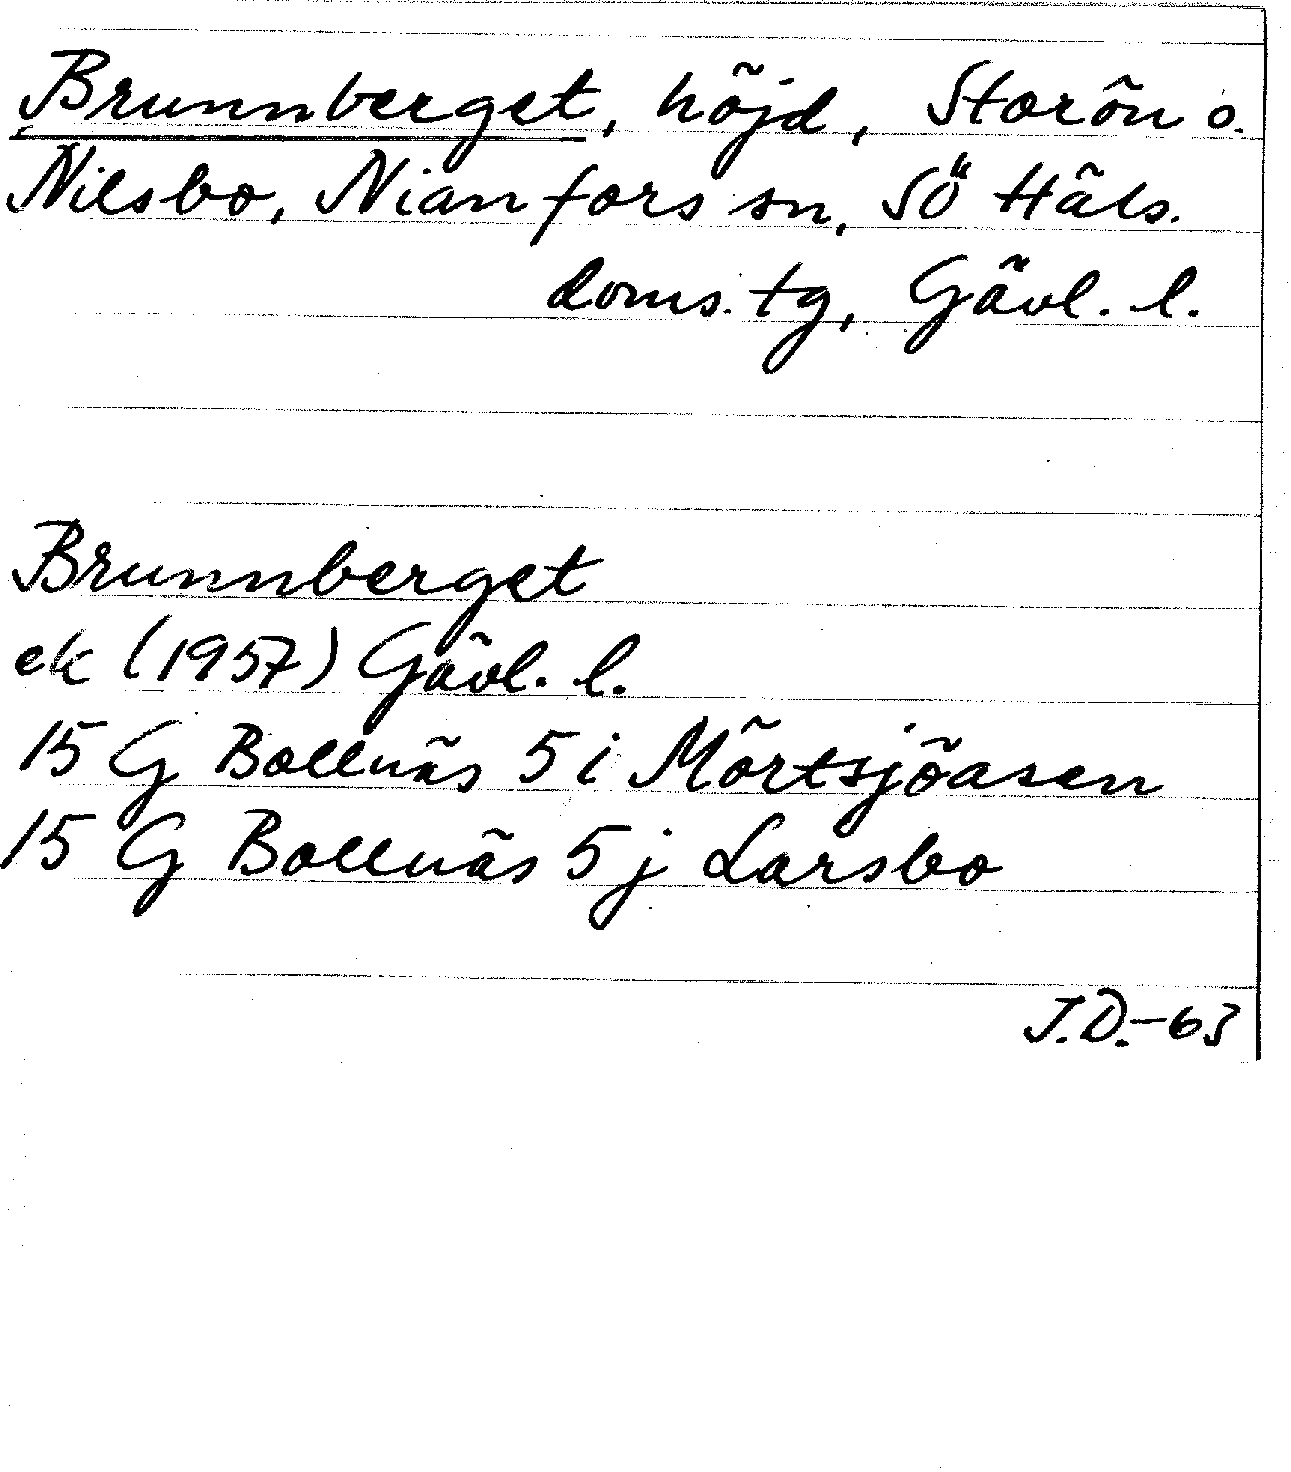 Brunnberget, höjd, Storön o.
Nilsbo, Nianfors sn, SÖ Häls.
doms. tg, Gävl. l.
Brunnberget
ek (1957) Gävl. l.
15 G Bollnäs 5 i Mörtsjöasen
15 G Bollnäs 5 j Larsbo
J.D.-63